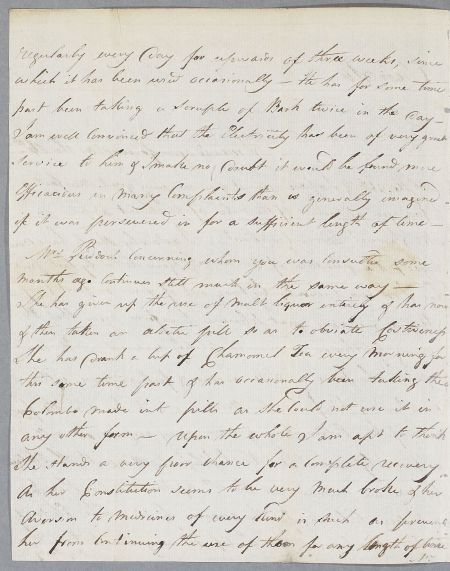 regularly every Day for upwards of three weeks, since
which it has been used occasionally – He has for some time
past been taking a scruple of Bark twice in the Day –
I am well convinced that the Electricity has been of very great
service to him & I make no Doubt it would be found more
Efficacious in many Complaints than is generally imagined
if it was persevered in for a sufficient length of time –
Mrs concerning whom you was consulted some
months ago continues still much in the same way –
She has given up the use of malt liquor entirely & has now
& then taken an aloetic pill so as to obviate Costiveness
She has Drank a Cup of Chamomel Tea every Morning for
this some time past & has occasionally been taking the
Colombo made into pills as She could not use it in
any other form – Upon the whole I am apt to think
She stands a very poor chance for a complete recovery
As her Constitution seems to be very much broke & her
Aversion to medicines of every kind is such as prevents
her from Continuing the use of them for any length of time